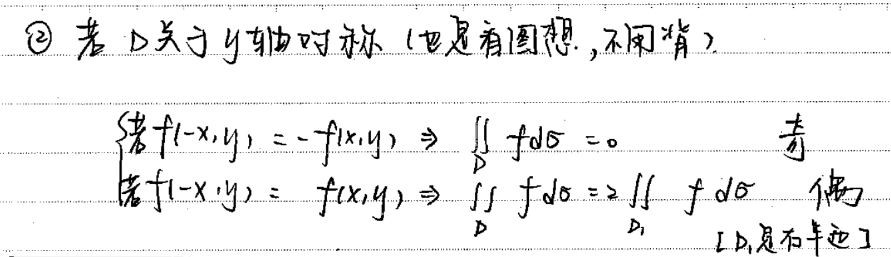 ② 若 D关于y轴对称（也是看图想,不用背）
{若f(-x,y) = -f(x,y) ⇒ ∬_D fdσ = 0 奇
若f(-x,y) = f(x,y) ⇒ ∬_D fdσ = 2∬_{D₁} fdσ 偶
[D₁是右半边]